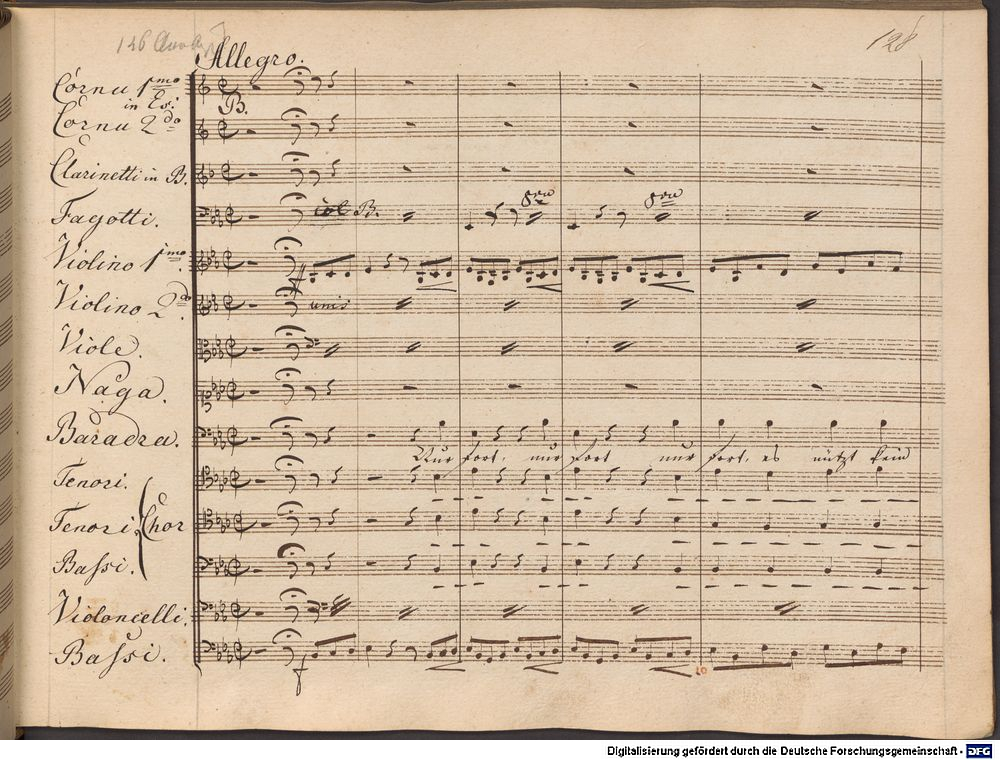 128
Allegro.
Cornu 1mo
in Es:
B.
Cornu 2do
Clarinetti in B.
Fagotti. col B. 8va 8va
Violino 1mo. f
Violino 2do. unis
Viole.
Naga.
Baradra.
Nur fort, nur fort nur fort, es nützt kein
Tenori.
Tenori Chor
Bassi.
Violoncelli.
Bassi.
f
10
Digitalisierung gefördert durch die Deutsche Forschungsgemeinschaft - DFG